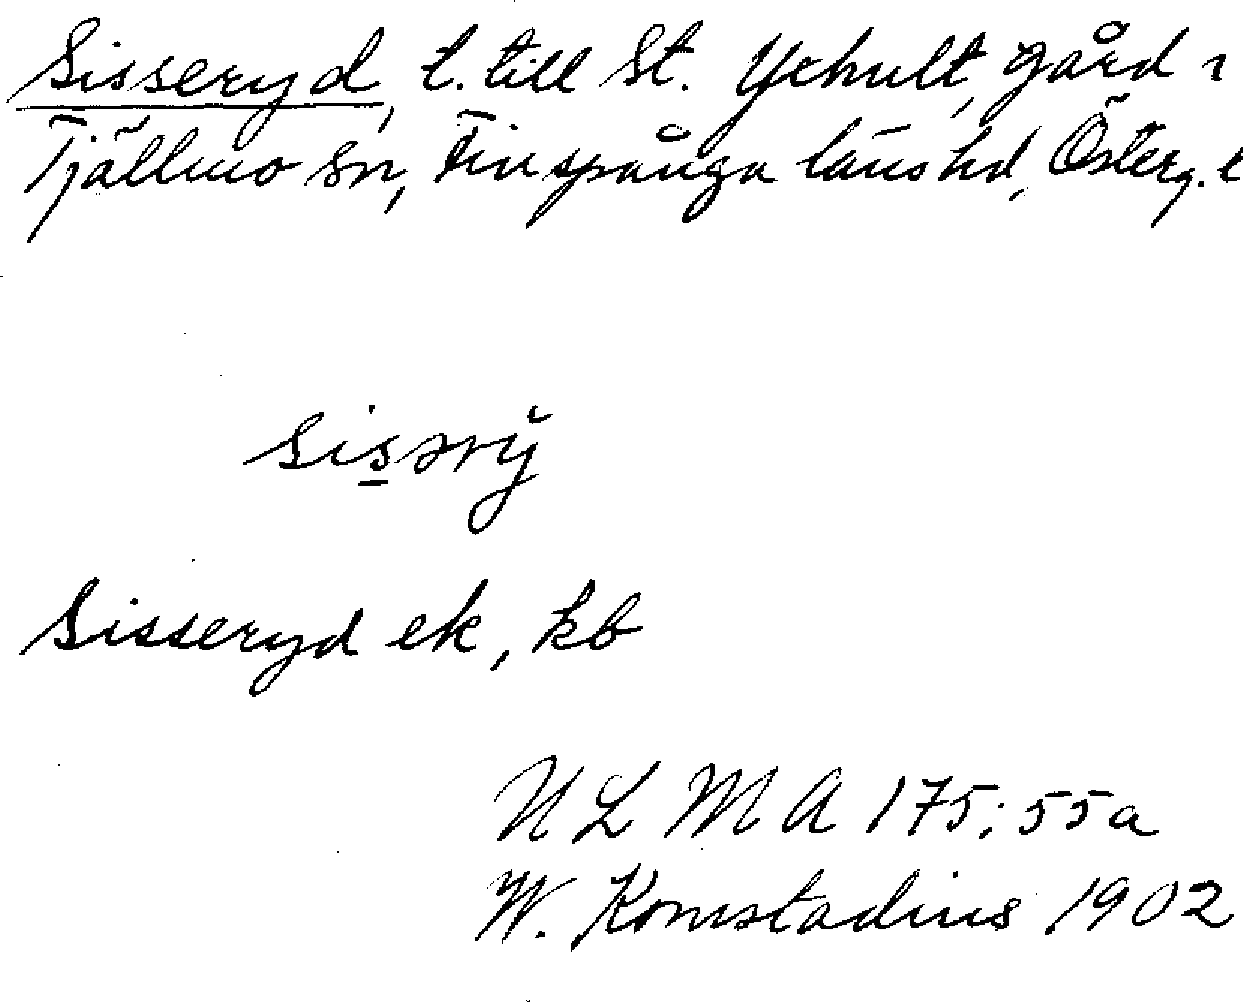 Sisseryd, t. till St. Ychult, gård i
Tjällmo sn, Finspånga läns hd, Österg. l
sisərў
Sisseryd ek, kb
ULMA 175:55a
W. Komstadius 1902